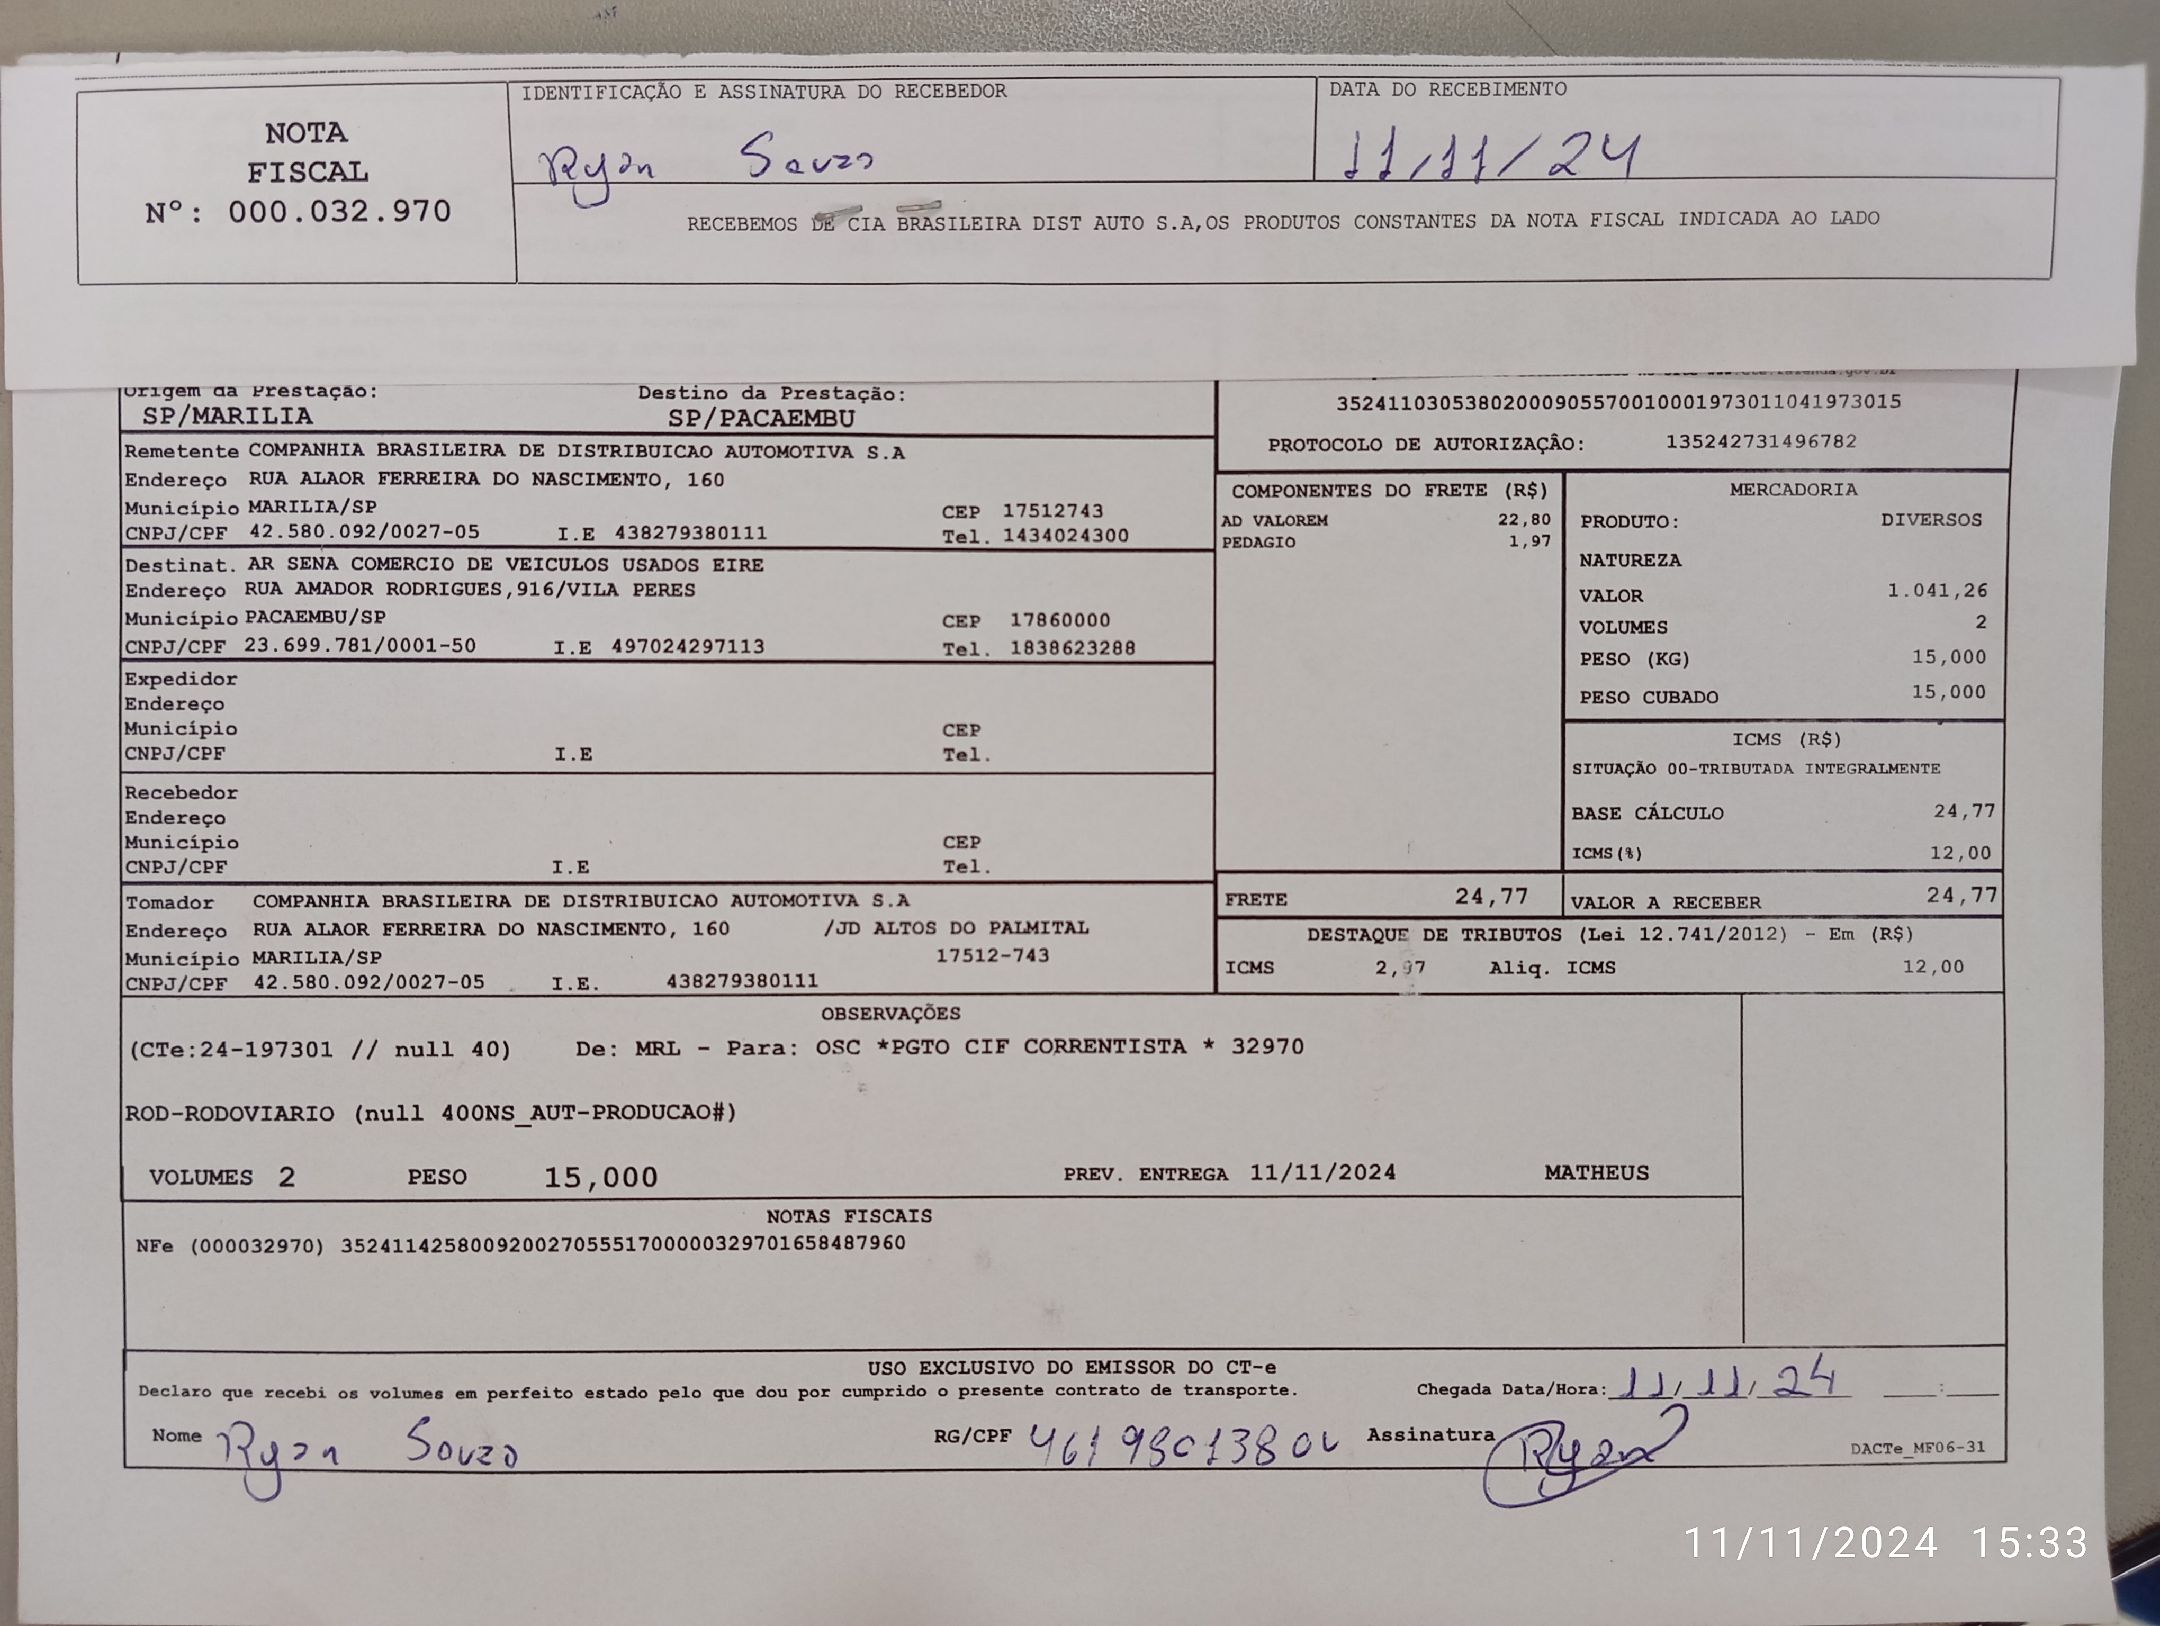 NOTA
FISCAL
Nº: 000.032.970
IDENTIFICAÇÃO E ASSINATURA DO RECEBEDOR
Ryan Souza
DATA DO RECEBIMENTO
11/11/24
RECEBEMOS DE CIA BRASILEIRA DIST AUTO S.A,OS PRODUTOS CONSTANTES DA NOTA FISCAL INDICADA AO LADO
Origem da Prestação: Destino da Prestação:
SP/MARILIA SP/PACAEMBU
35241103053802000905570010001973011041973015
PROTOCOLO DE AUTORIZAÇÃO: 135242731496782
Remetente COMPANHIA BRASILEIRA DE DISTRIBUICAO AUTOMOTIVA S.A
Endereço RUA ALAOR FERREIRA DO NASCIMENTO, 160
Município MARILIA/SP CEP 17512743
CNPJ/CPF 42.580.092/0027-05 I.E 438279380111 Tel. 1434024300
Destinat. AR SENA COMERCIO DE VEICULOS USADOS EIRE
Endereço RUA AMADOR RODRIGUES,916/VILA PERES
Município PACAEMBU/SP CEP 17860000
CNPJ/CPF 23.699.781/0001-50 I.E 497024297113 Tel. 1838623288
Expedidor
Endereço
Município CEP
CNPJ/CPF I.E Tel.
Recebedor
Endereço
Município CEP
CNPJ/CPF I.E Tel.
Tomador COMPANHIA BRASILEIRA DE DISTRIBUICAO AUTOMOTIVA S.A
Endereço RUA ALAOR FERREIRA DO NASCIMENTO, 160 /JD ALTOS DO PALMITAL
Município MARILIA/SP 17512-743
CNPJ/CPF 42.580.092/0027-05 I.E. 438279380111
COMPONENTES DO FRETE (R$)
AD VALOREM 22,80
PEDAGIO 1,97
MERCADORIA
PRODUTO: DIVERSOS
NATUREZA
VALOR 1.041,26
VOLUMES 2
PESO (KG) 15,000
PESO CUBADO 15,000
ICMS (R$)
SITUAÇÃO 00-TRIBUTADA INTEGRALMENTE
BASE CÁLCULO 24,77
ICMS(%) 12,00
FRETE 24,77 VALOR A RECEBER 24,77
DESTAQUE DE TRIBUTOS (Lei 12.741/2012) - Em (R$)
ICMS 2,97 Aliq. ICMS 12,00
OBSERVAÇÕES
(CTe:24-197301 // null 40) De: MRL - Para: OSC *PGTO CIF CORRENTISTA * 32970
ROD-RODOVIARIO (null 400NS_AUT-PRODUCAO#)
VOLUMES 2 PESO 15,000 PREV. ENTREGA 11/11/2024 MATHEUS
NOTAS FISCAIS
NFe (000032970) 35241142580092002705551700000329701658487960
USO EXCLUSIVO DO EMISSOR DO CT-e
Declaro que recebi os volumes em perfeito estado pelo que dou por cumprido o presente contrato de transporte. Chegada Data/Hora: 11/11/24 __:__
Nome Ryan Souza RG/CPF Assinatura Ryan
DACTe_MF06-31
11/11/2024 15:33